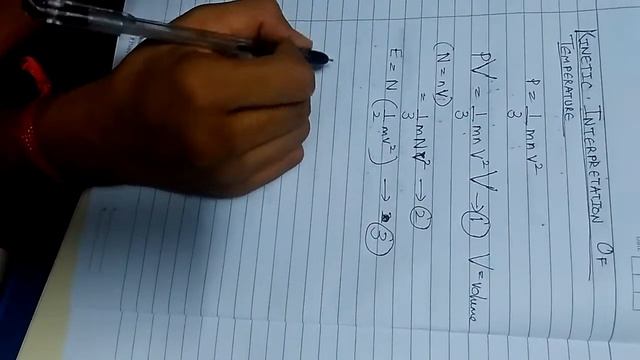 KINETIC INTERPRETATION OF
TEMPERATURE
P = 1/3 mn v²
PV = 1/3 mn v² V → ① V = volume
(N = nV)
= 1/3 mN v² → ②
E = N (1/2 mv²) → ③